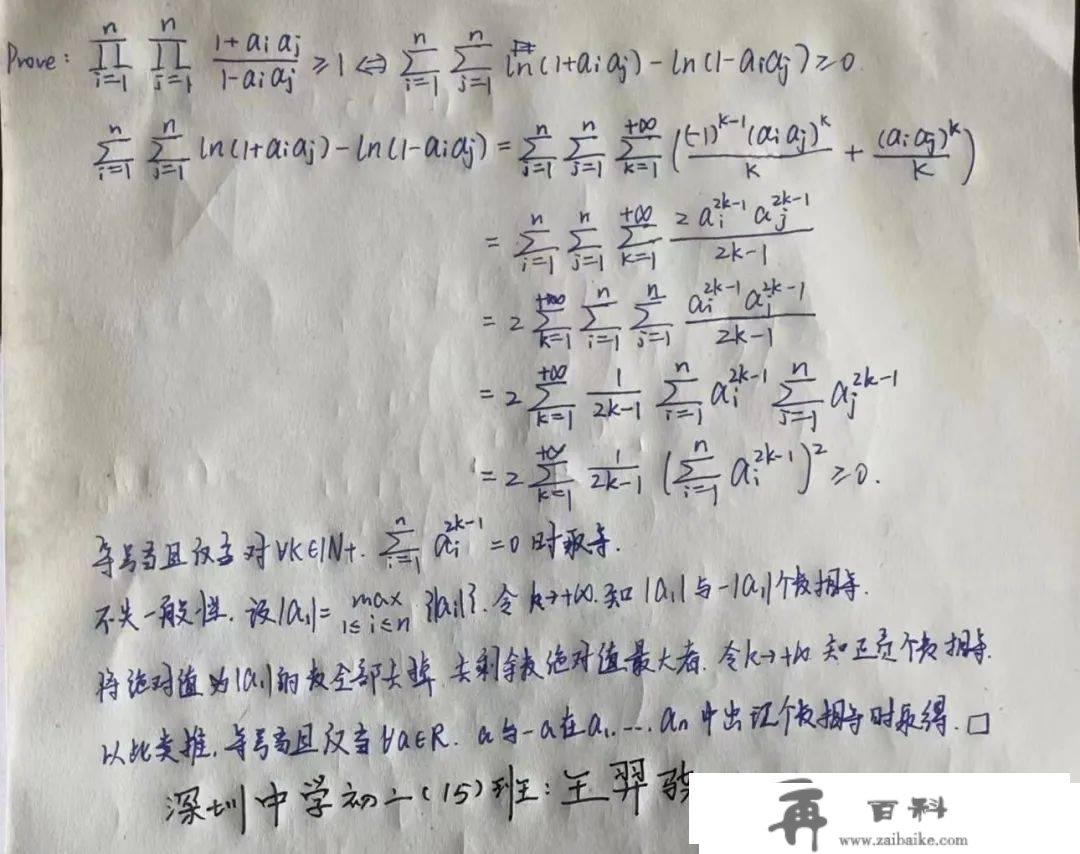 Prove: $\prod_{i=1}^{n} \prod_{j=1}^{n} \frac{1+a_i a_j}{1-a_i a_j} \geq 1 \Leftrightarrow \sum_{i=1}^{n} \sum_{j=1}^{n} \ln(1+a_i a_j) - \ln(1-a_i a_j) \geq 0$.
$\sum_{i=1}^{n} \sum_{j=1}^{n} \ln(1+a_i a_j) - \ln(1-a_i a_j) = \sum_{i=1}^{n} \sum_{j=1}^{n} \sum_{k=1}^{+\infty} \left( \frac{(-1)^{k-1} (a_i a_j)^k}{k} + \frac{(a_i a_j)^k}{k} \right)$
$= \sum_{i=1}^{n} \sum_{j=1}^{n} \sum_{k=1}^{+\infty} \frac{2 a_i^{2k-1} a_j^{2k-1}}{2k-1}$
$= 2 \sum_{k=1}^{+\infty} \sum_{i=1}^{n} \sum_{j=1}^{n} \frac{a_i^{2k-1} a_j^{2k-1}}{2k-1}$
$= 2 \sum_{k=1}^{+\infty} \frac{1}{2k-1} \sum_{i=1}^{n} a_i^{2k-1} \sum_{j=1}^{n} a_j^{2k-1}$
$= 2 \sum_{k=1}^{+\infty} \frac{1}{2k-1} \left( \sum_{i=1}^{n} a_i^{2k-1} \right)^2 \geq 0$.
等号当且仅当对 $\forall k \in \mathbb{N}+$. $\sum_{i=1}^{n} a_i^{2k-1} = 0$ 时取等.
不失一般性. 设 $|a_1| = \max_{1 \leq i \leq n} \{|a_i|\}$. 令 $k \to +\infty$. 知 $|a_1|$ 与 $-|a_1|$ 个数相等.
将绝对值为 $|a_1|$ 的数全部去掉. 去剩余数绝对值最大者. 令 $k \to +\infty$ 知正负个数相等.
以此类推. 等号当且仅当 $\forall a \in R$. $a$ 与 $-a$ 在 $a_1, \dots, a_n$ 中出现个数相等时取得. □
深圳中学初二(15)班: 王羿
再 百科
www.zaibaike.com